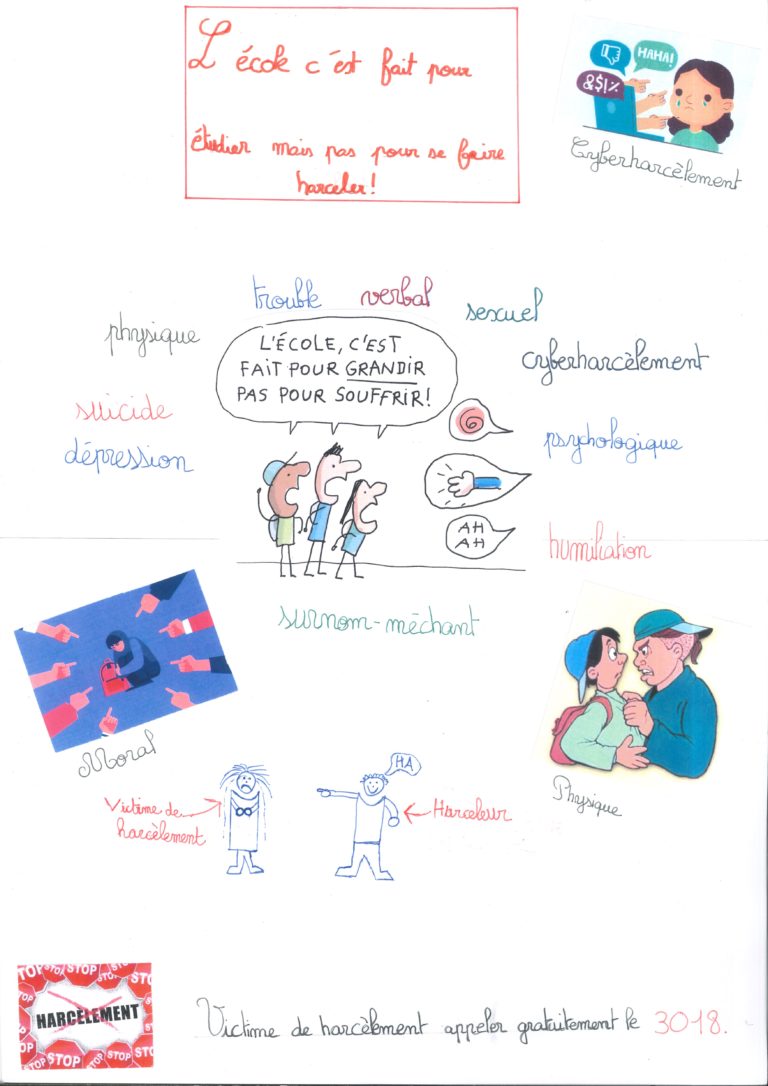 L'école c'est fait pour
étudier mais pas pour se faire
harceler!
HAHA!
&$!%
Cyberharcèlement
trouble
verbal
sexuel
physique
cyberharcèlement
L'ÉCOLE, C'EST
FAIT POUR GRANDIR
PAS POUR SOUFFRIR!
suicide
dépression
psychologique
AH
AH
humiliation
surnom-mèchant
Moral
Physique
HA
Victime de
harcèlement
Harceleur
STOP
HARCÈLEMENT
STOP
Victime de harcèlement appeler gratuitement le 3018.